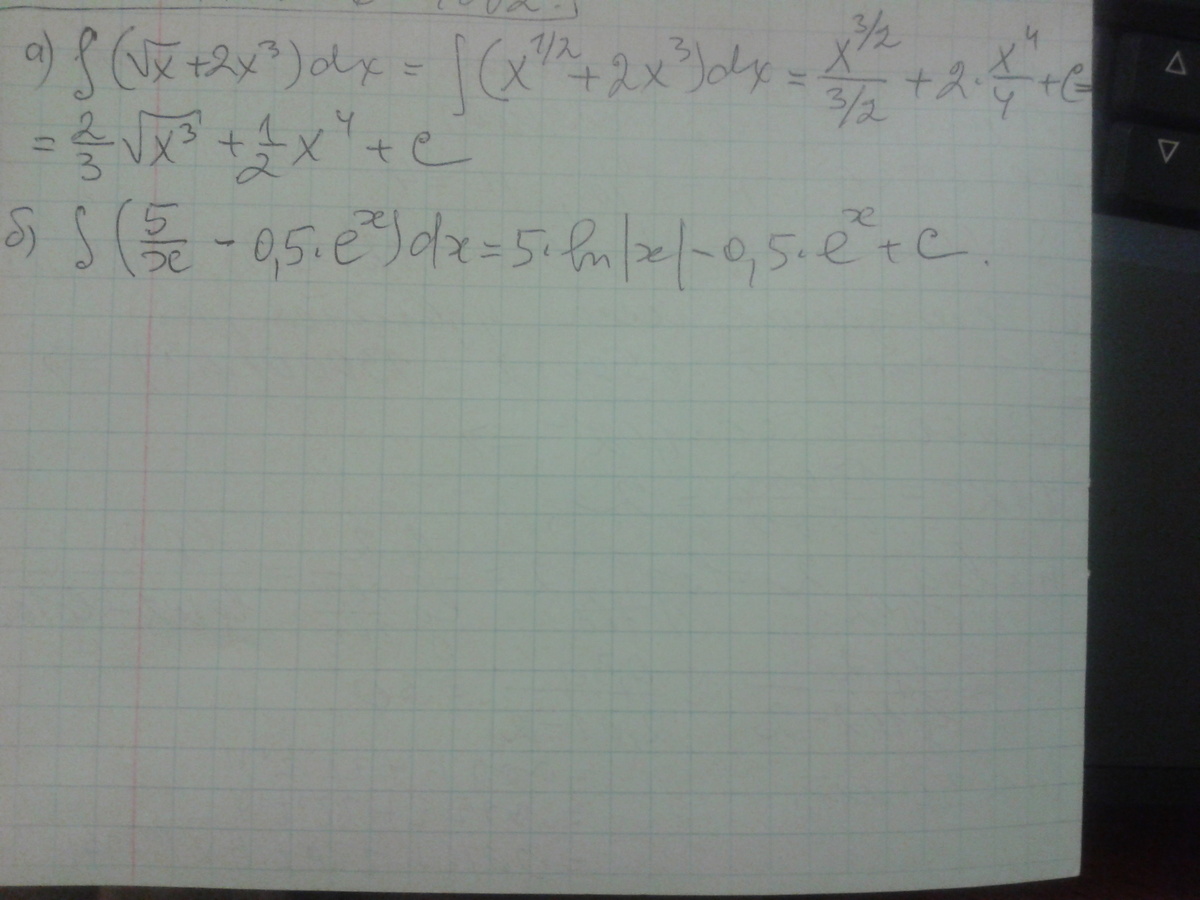 а) ∫(√x+2x³)dx = ∫(x^1/2+2x³)dx = x^3/2 / 3/2 + 2·x⁴/4 + C=
= 2/3 √x³ + 1/2 x⁴ + C
б) ∫(5/x - 0,5·e^x)dx = 5·ln|x| - 0,5·e^x + C.